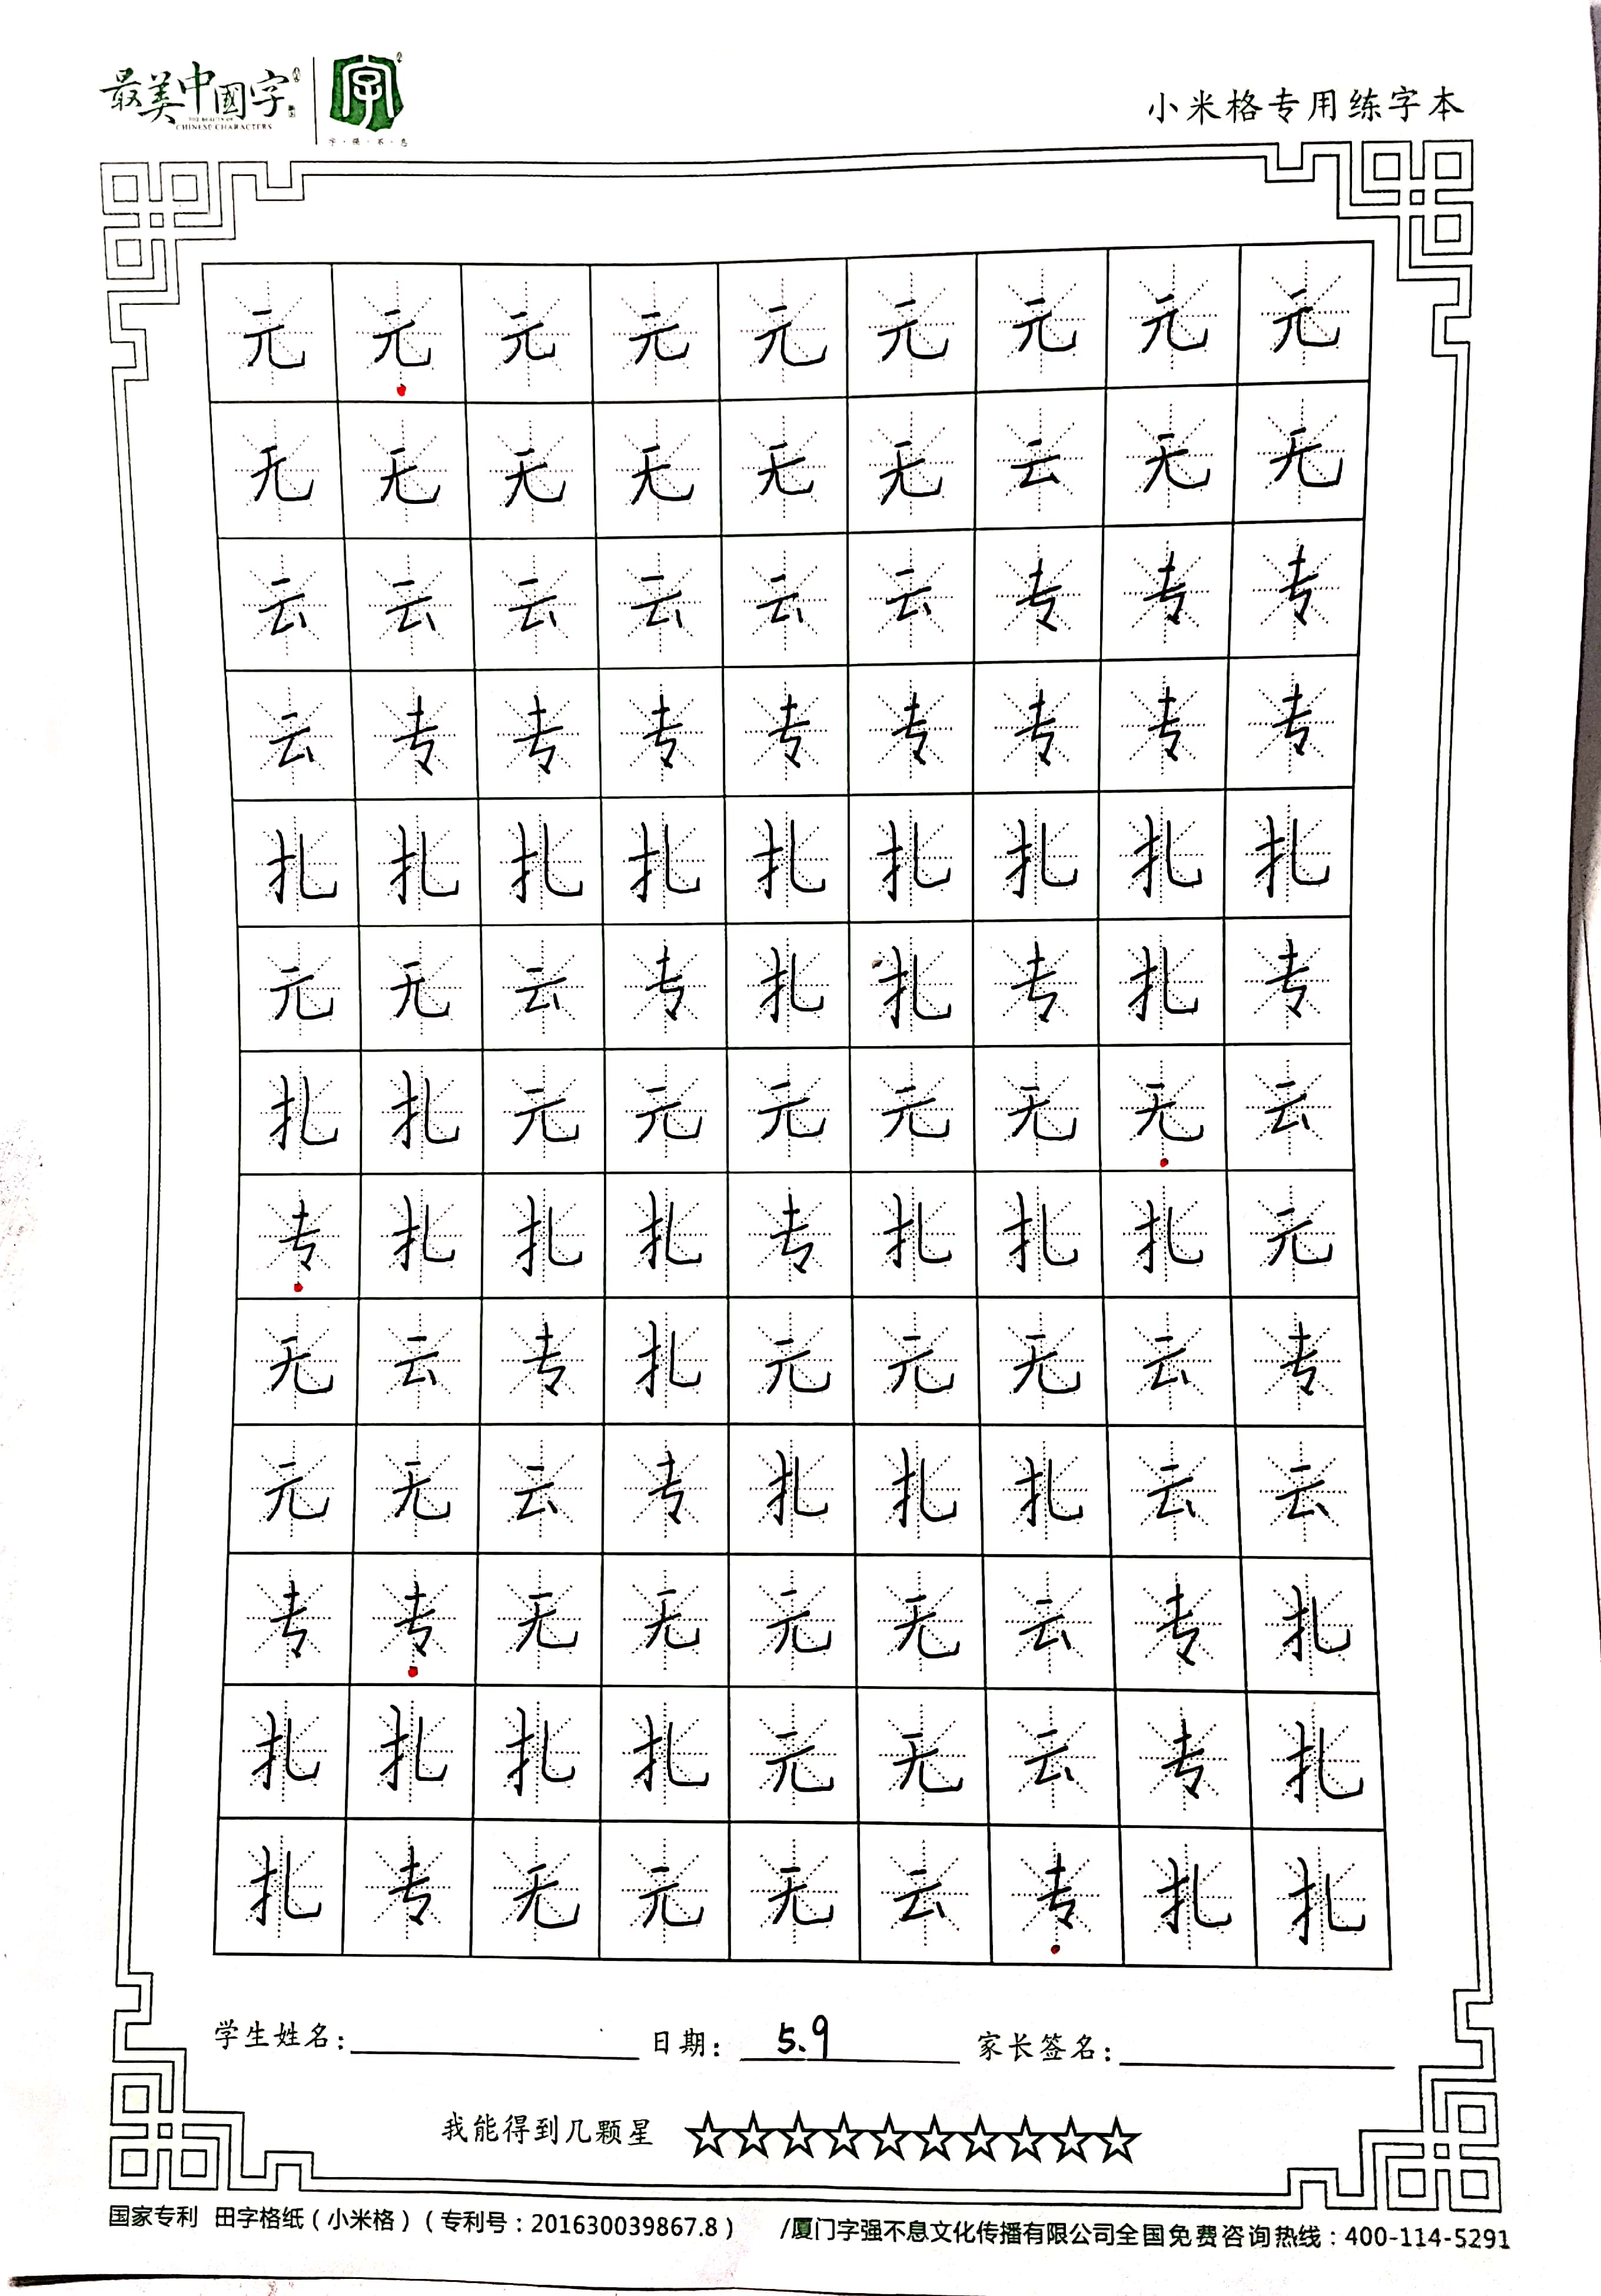 最美中國字
THE BEAUTY OF
CHINESE CHARACTERS
字
字·强·不·息
小米格专用练字本
元 元 元 元 元 元 元 元 元
无 无 无 无 无 无 云 无 无
云 云 云 云 云 云 专 专 专
云 专 专 专 专 专 专 专 专
扎 扎 扎 扎 扎 扎 扎 扎 扎
元 无 云 专 扎 扎 专 扎 专
扎 扎 元 元 元 元 无 无 云
专 扎 扎 扎 专 扎 扎 扎 元
无 云 专 扎 元 元 无 云 专
元 无 云 专 扎 扎 扎 云 云
专 专 无 无 元 无 云 专 扎
扎 扎 扎 扎 元 无 云 专 扎
扎 专 无 元 无 云 专 扎 扎
学生姓名： 日期：5.9 家长签名：
我能得到几颗星 ☆☆☆☆☆☆☆☆☆☆
国家专利 田字格纸（小米格）（专利号：201630039867.8） /厦门字强不息文化传播有限公司全国免费咨询热线：400-114-5291